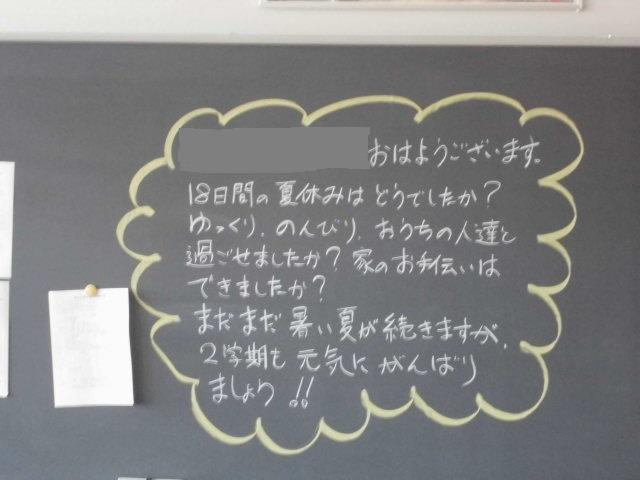 おはようございます。
18日間の夏休みはどうでしたか?
ゆっくり、のんびり、おうちの人達と
過ごせましたか?家のお手伝いは
できましたか?
まだまだ暑い夏が続きますが、
2学期も元気にがんばり
ましょう!!